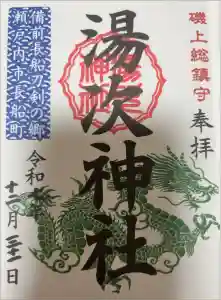 磯上総鎮守
奉拝
湯次神社
備前長船刀剣の郷
瀬戸内市長船町
令和
十二月
日